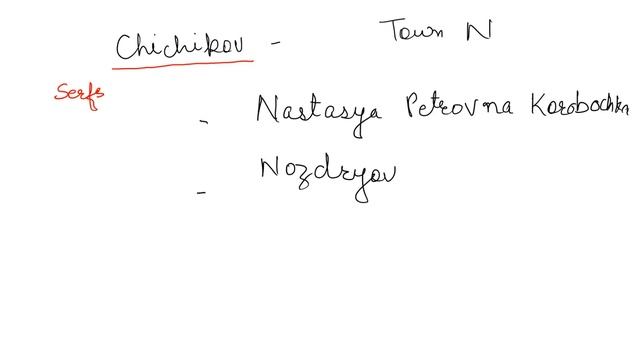 Chichikov - Town N
Serfs
- Nastasya Petrovna Korobochka
- Nozdryov